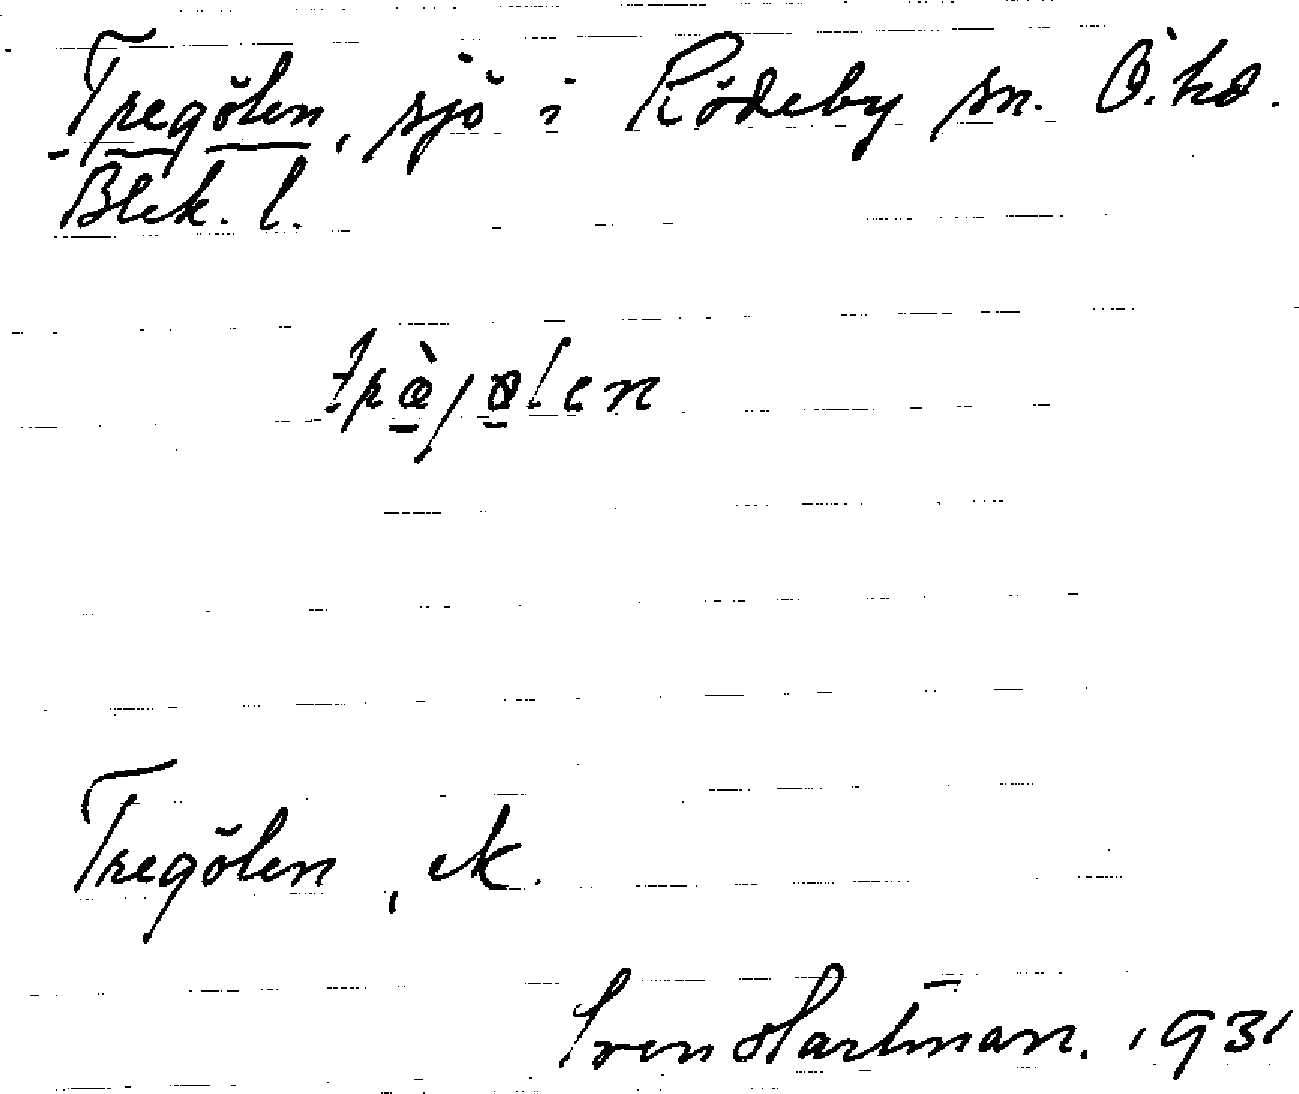 Tregölen, sjö i Rödeby sn. Ö. hd.
Blek. l.
Tregölen, ek.
Sven Hartman. 1931